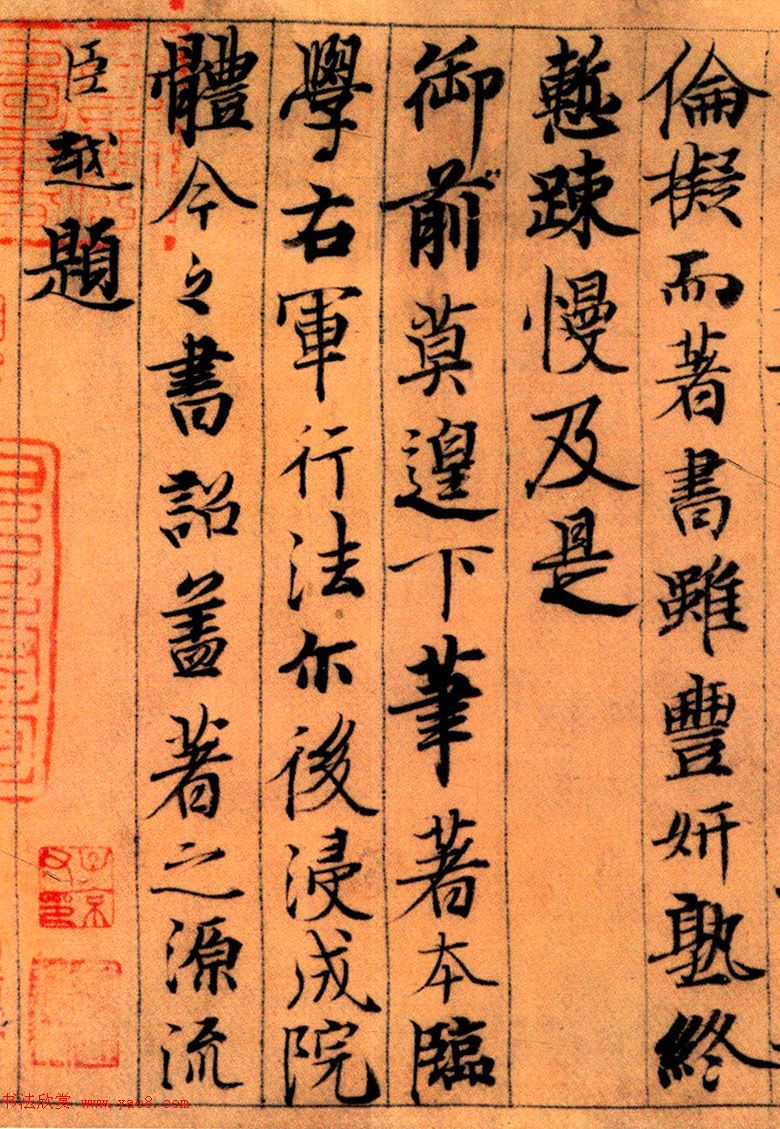 倫擬而著書雖豐妍熟終
慙踈慢及是
御前莫遑下筆著本臨
學右軍行法尒後浸成院
體今之書詔盖著之源流
臣越題
子京父印
书法欣赏 www.yac8.com